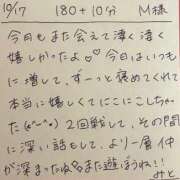 10/17 180+10分 M様
今日もまた会えて凄く凄く
嬉しかったよ♡ 今日はいつも
に増して、ずーっと褒めてくれて
本当に嬉しくてにこにこしちゃっ
た(*˘︶˘*) 2回戦して、その間
に深い話もして、より一層仲
が深まったね また遊ぼうね!!
みと